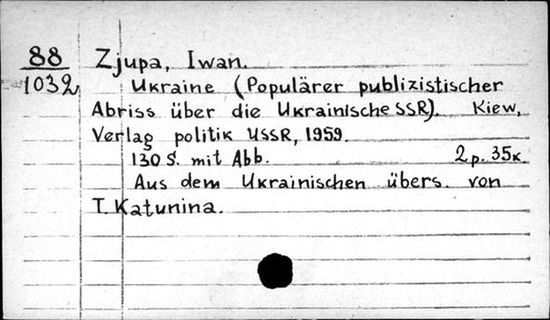 88 Zjupa, Iwan.
1032 Ukraine (Populärer publizistischer
Abriss über die Ukrainische SSR). Kiew,
Verlag politik USSR, 1959.
130 S. mit Abb. 2 p. 35к
Aus dem Ukrainischen übers. von
T. Katunina.